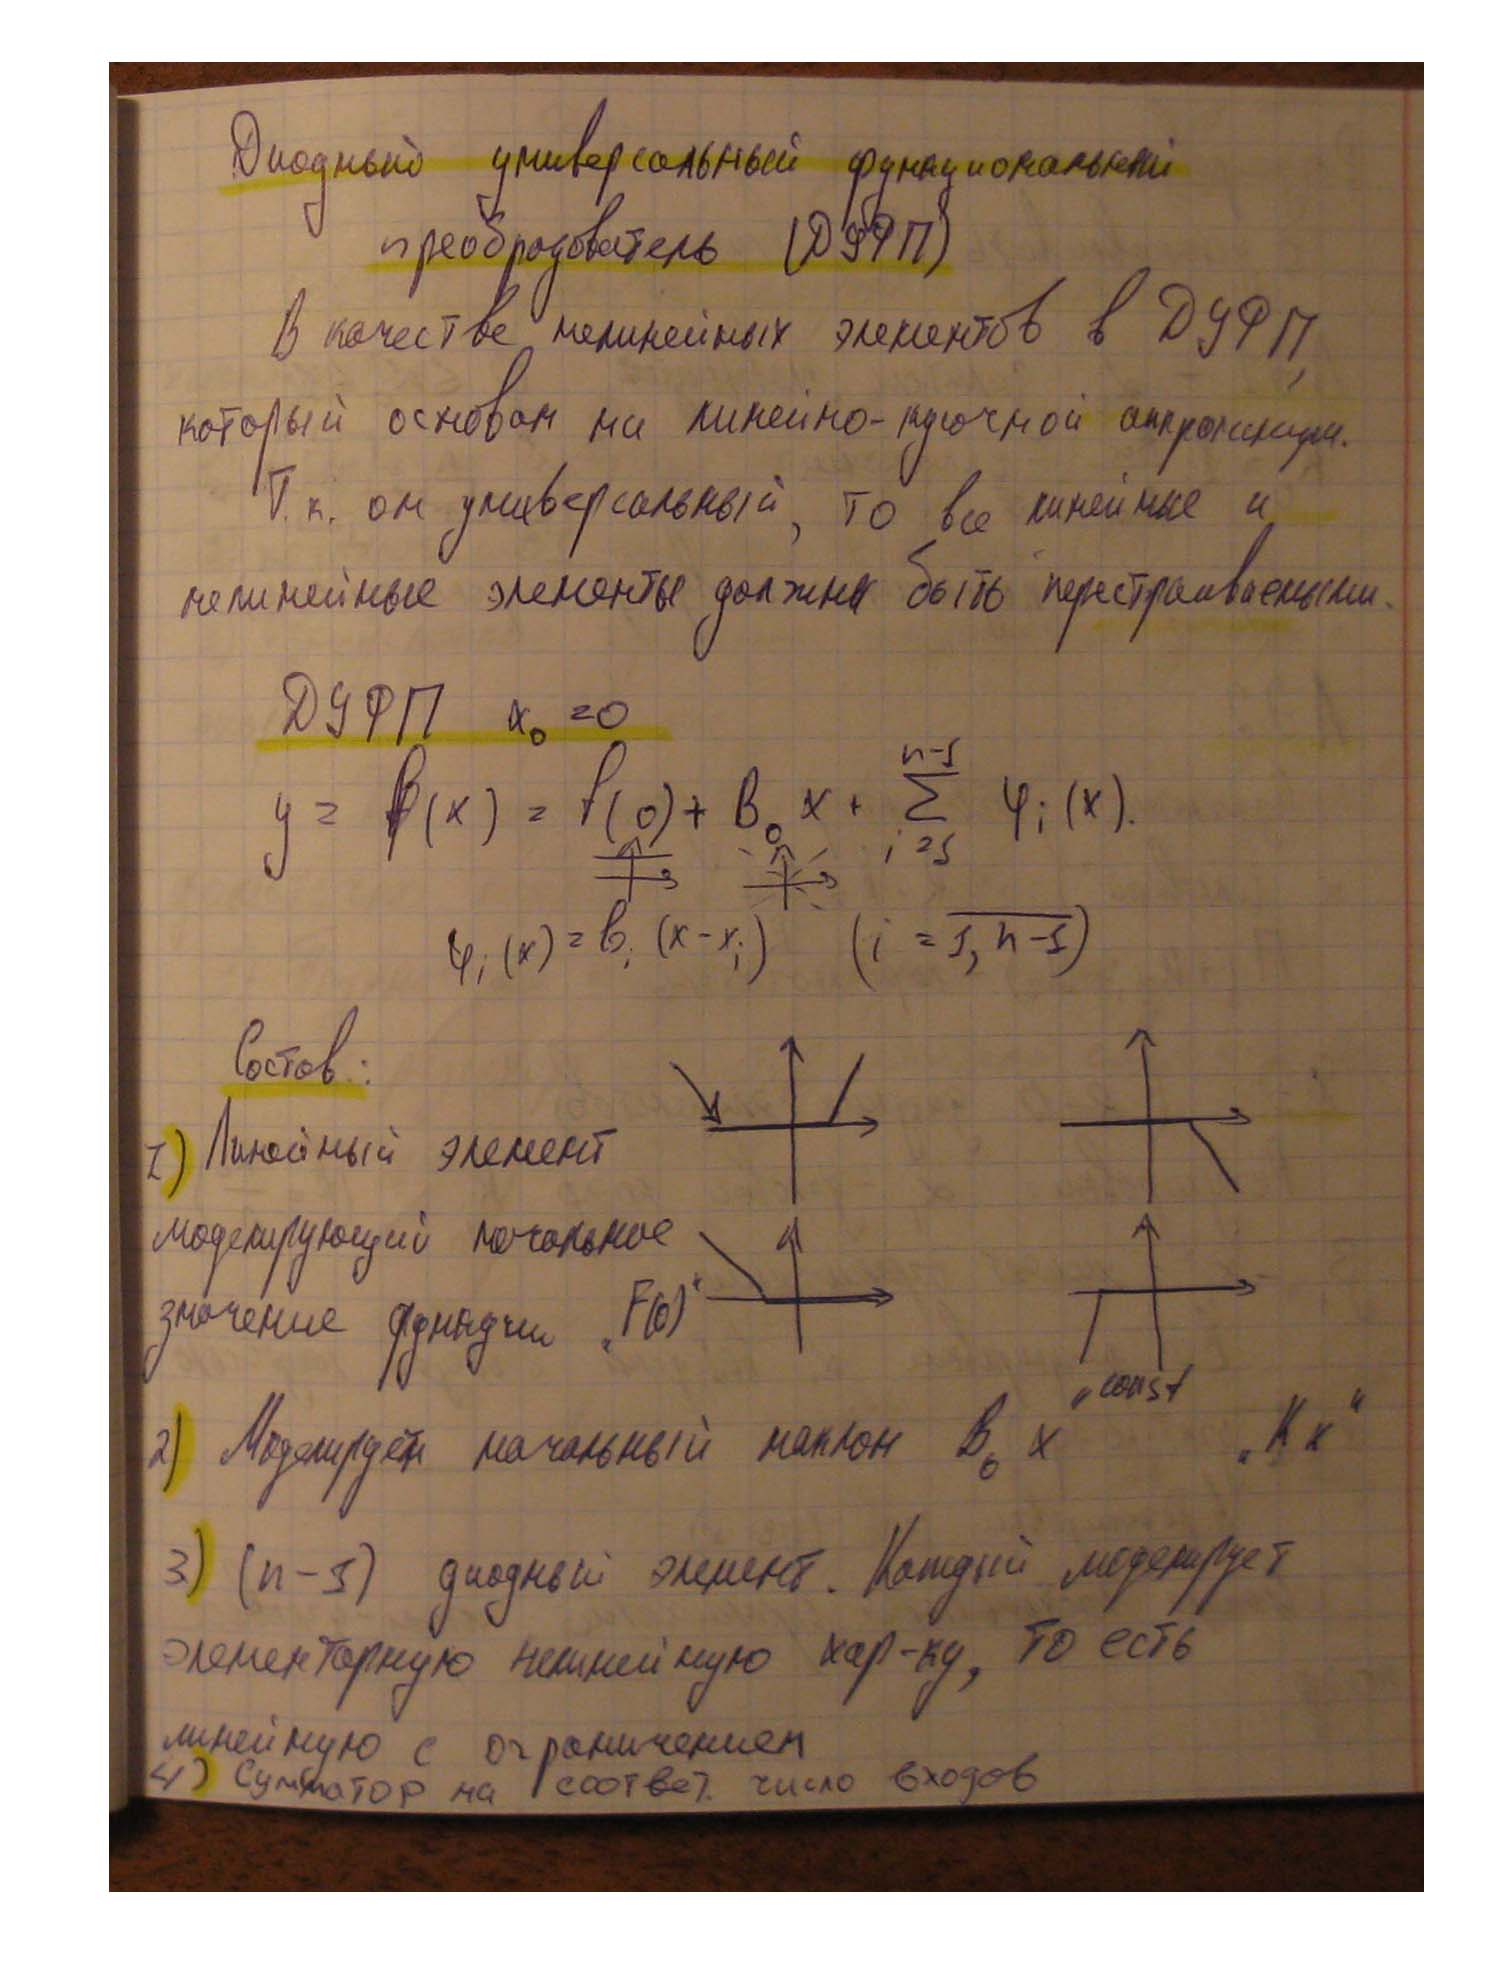 Диодный универсальный функциональный
преобразователь (ДУФП)
В качестве нелинейных элементов в ДУФП,
который основан на линейно-кусочной аппроксимации.
Т.к. он универсальный, то все линейные и
нелинейные элементы должны быть перестраиваемыми.
ДУФП x₀ =0
y = f(x) = f(0) + B₀ x + Σ φᵢ(x).
n-1
i=1
φᵢ(x) = bᵢ (x-xᵢ) (i = 1, n-1)
Состав:
1) Линейный элемент
моделирующий начальное
значение функции „F(0)"
„const"
2) Моделирует начальный наклон B₀ x „Kx"
3) (n-1) диодный элемент. Каждый моделирует
элементарную нелинейную хар-ку, то есть
линейную с ограничением
4) Сумматор на соответ. число входов